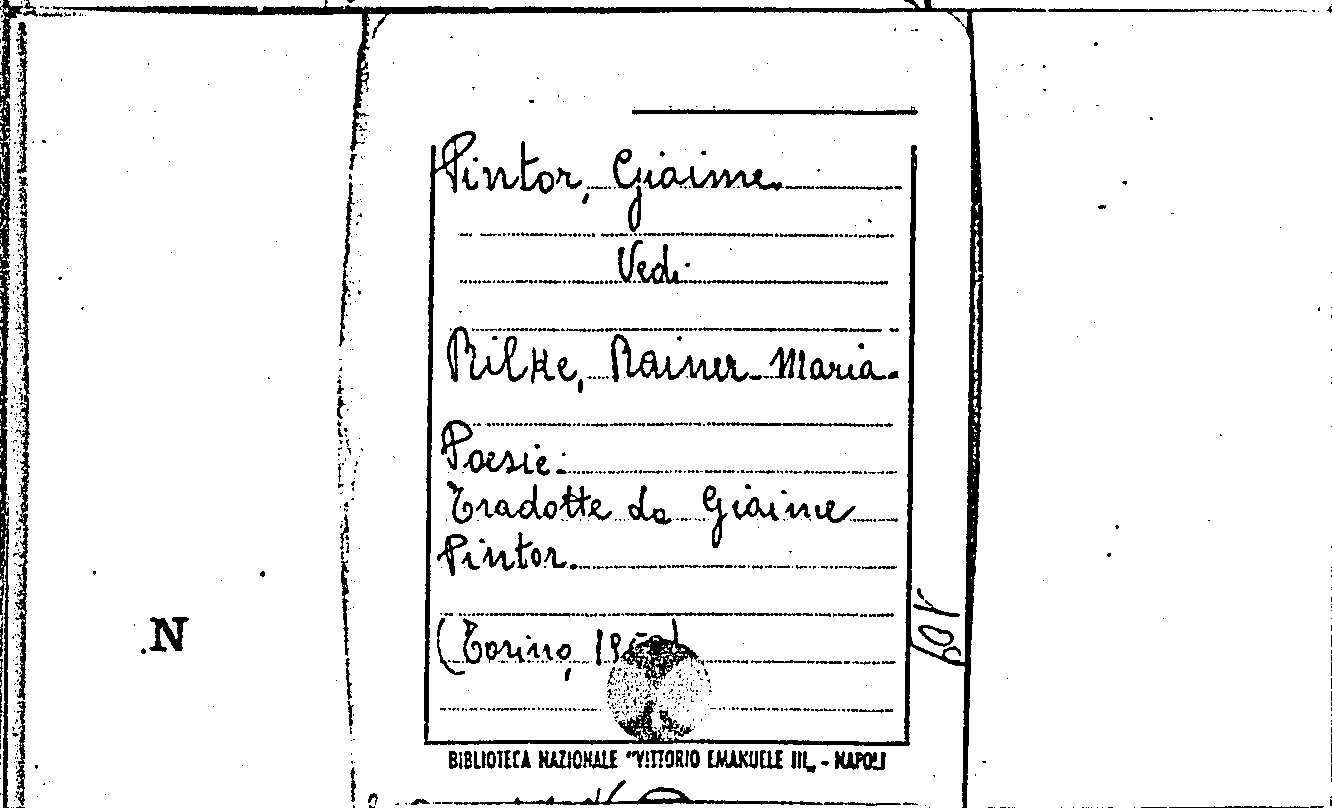 Pintor, Giaime.
Vedi
Rilke, Rainer Maria.
Poesie.
Tradotte da Giaime
Pintor.
(Torino,
BIBLIOTECA NAZIONALE "VITTORIO EMANUELE III„ - NAPOLI
.N